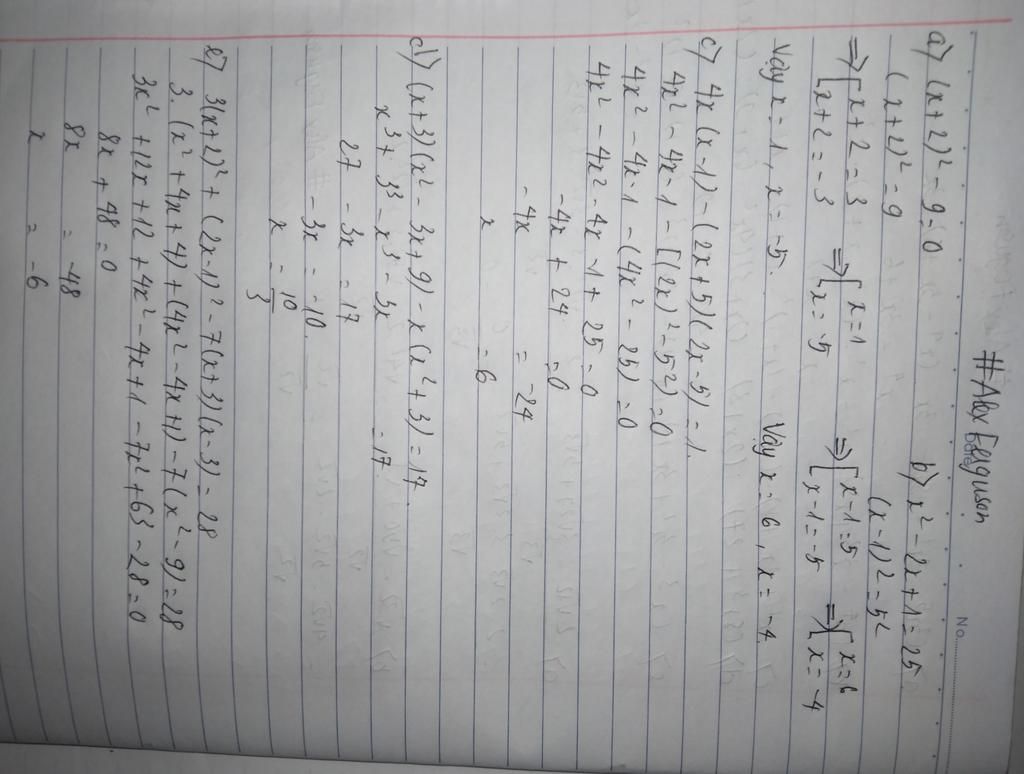 No.
Date
#Alex Ferguson
a) (x+2)² - 9 = 0
(x+2)² = 9
⇒ [x+2 = 3 ⇒ [x = 1
[x+2 = -3 [x = -5
Vậy x = 1, x = -5.
b) x² - 2x + 1 = 25
(x-1)² = 5²
⇒ [x-1 = 5 ⇒ [x = 6
[x-1 = -5 [x = -4
Vậy x = 6, x = -4
c) 4x(x-1) - (2x+5)(2x-5) = 1.
4x² - 4x - 1 - [(2x)² - 5²] = 0
4x² - 4x - 1 - (4x² - 25) = 0
4x² - 4x² - 4x - 1 + 25 = 0
-4x + 24 = 0
-4x = -24
x = 6
d) (x+3)(x² - 3x + 9) - x(x² + 3) = 17.
x³ + 3³ - x³ - 3x = 17.
27 - 3x = 17
-3x = -10.
x = 10/3
e) 3(x+2)² + (2x-1)² - 7(x+3)(x-3) = 28
3.(x² + 4x + 4) + (4x² - 4x + 1) - 7(x² - 9) = 28
3x² + 12x + 12 + 4x² - 4x + 1 - 7x² + 63 - 28 = 0
8x + 48 = 0
8x = -48
x = -6